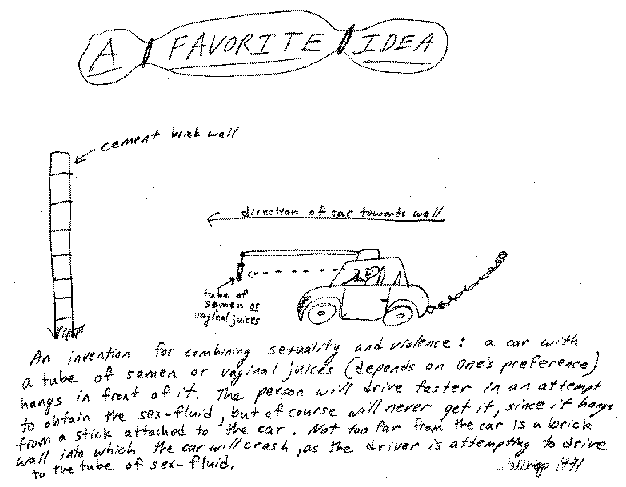 A FAVORITE IDEA
cement brick wall
direction of car towards wall
tube of
semen or
vaginal juices
An invention for combining sexuality and violence: a car with
a tube of semen or vaginal juices (depends on one's preference)
hangs in front of it. The person will drive faster in an attempt
to obtain the sex-fluid, but of course will never get it, since it hangs
from a stick attached to the car. Not too far from the car is a brick
wall into which the car will crash, as the driver is attempting to drive
to the tube of sex-fluid.